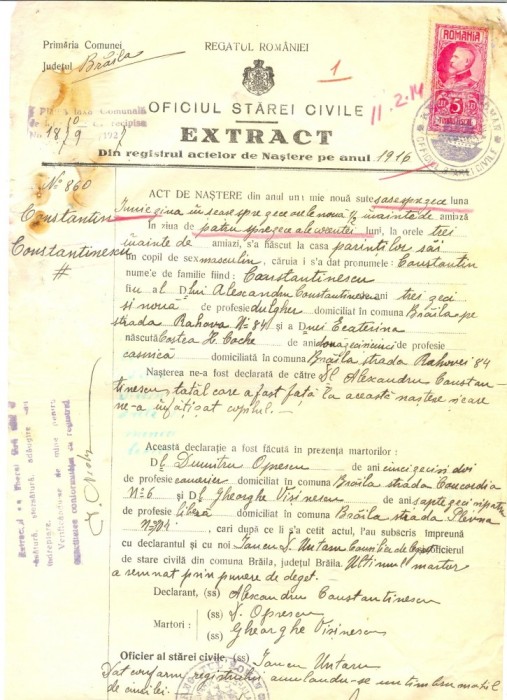 Primăria Comunei
Județul Brăila
REGATUL ROMÂNIEI
1
ROMANIA
5
11.2.14
No. 18 9
OFICIUL STĂREI CIVILE
OFICIUL STAREI CIVILE
EXTRACT
Din registrul actelor de Naștere pe anul 1916
No 860
Constantin
Constantinescu
#
ACT DE NAȘTERE din anul un mie nouă sute șasesprezece luna
Iunie ziua în șeasesprezece orele nouă înainte de amiază
În ziua de patrusprezece ale curentei luni, la orele trei
înainte de amiazi, s'a născut la casa părinților săi
un copil de sex masculin, căruia i s'a dat pronumele: Constantin
nume'e de familie fiind: Constantinescu
fiu al D lui Alexandru Constantinescu ani trei zeci
și nouă de profesie dulgher domiciliat în comuna Brăila pe
strada Rahova No 84 și a D nei Ecaterina
născută Costea H. Coche de ani douăzeci și cinci de profesie
casnică domiciliată în comuna Brăila strada Rahovei 84
Nașterea ne-a fost declarată de către Dl Alexandru Constan-
tinescu, tatăl care a fost față la această naștere și care
ne-a înfățișat copilul.—
Această declarație a fost făcută în prezența martorilor:
Dl Dumitru Oprescu de ani cincizeci și doi
de profesie domiciliat în comuna Brăila strada Concordia
No 6 și Dl Gheorghe Visinescu de ani șaptezeci și patru
de profesie liberă domiciliat în comuna Brăila strada Plevna
cari după ce li s'a cetit actul, l'au subscris împreună
cu declarantul și cu noi Iancu S. Untaru ofițierul
de stare civilă din comuna Brăila, județul Brăila. Ultimul martor
a semnat prin punere de deget.—
Declarant, (ss) Alexandru Constantinescu
Martori: (ss) D. Oprescu
(ss) Gheorghe Visinescu
Oficier al stărei civile, (ss) Iancu Untaru
Dat conform registrului anulându-se un timbru mobil
de cinci lei.